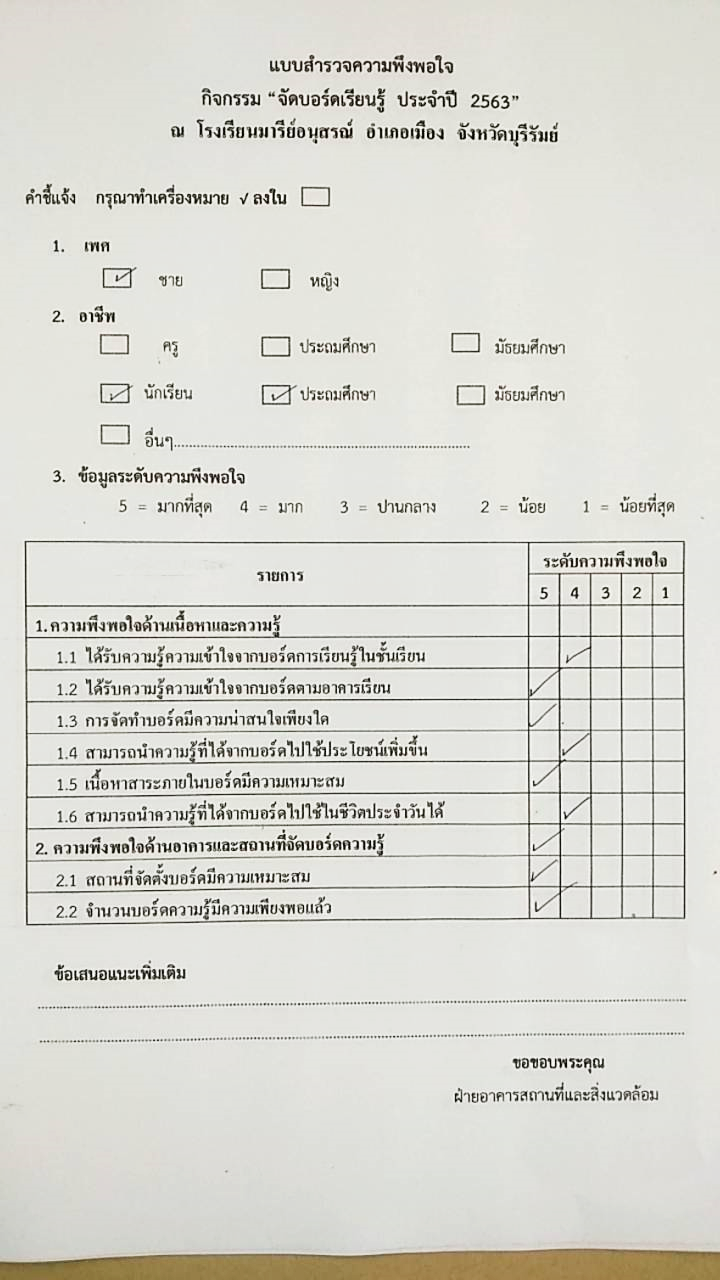 แบบสำรวจความพึงพอใจ
กิจกรรม “จัดบอร์ดเรียนรู้ ประจำปี 2563”
ณ โรงเรียนมารีย์อนุสรณ์ อำเภอเมือง จังหวัดบุรีรัมย์
คำชี้แจ้ง กรุณาทำเครื่องหมาย √ ลงใน ☐
1. เพศ
☑ ชาย ☐ หญิง
2. อาชีพ
☐ ครู ☐ ประถมศึกษา ☐ มัธยมศึกษา
☑ นักเรียน ☑ ประถมศึกษา ☐ มัธยมศึกษา
☐ อื่นๆ......................................................................
3. ข้อมูลระดับความพึงพอใจ
5 = มากที่สุด 4 = มาก 3 = ปานกลาง 2 = น้อย 1 = น้อยที่สุด
รายการ ระดับความพึงพอใจ
5 4 3 2 1
1. ความพึงพอใจด้านเนื้อหาและความรู้
1.1 ได้รับความรู้ความเข้าใจจากบอร์ดการเรียนรู้ในชั้นเรียน ✓
1.2 ได้รับความรู้ความเข้าใจจากบอร์ดตามอาคารเรียน ✓
1.3 การจัดทำบอร์ดมีความน่าสนใจเพียงใด ✓
1.4 สามารถนำความรู้ที่ได้จากบอร์ดไปใช้ประโยชน์เพิ่มขึ้น ✓
1.5 เนื้อหาสาระภายในบอร์ดมีความเหมาะสม ✓
1.6 สามารถนำความรู้ที่ได้จากบอร์ดไปใช้ในชีวิตประจำวันได้ ✓
2. ความพึงพอใจด้านอาคารและสถานที่จัดบอร์ดความรู้ ✓
2.1 สถานที่จัดตั้งบอร์ดมีความเหมาะสม ✓
2.2 จำนวนบอร์ดความรู้มีความเพียงพอแล้ว ✓
ข้อเสนอแนะเพิ่มเติม
ขอขอบพระคุณ
ฝ่ายอาคารสถานที่และสิ่งแวดล้อม